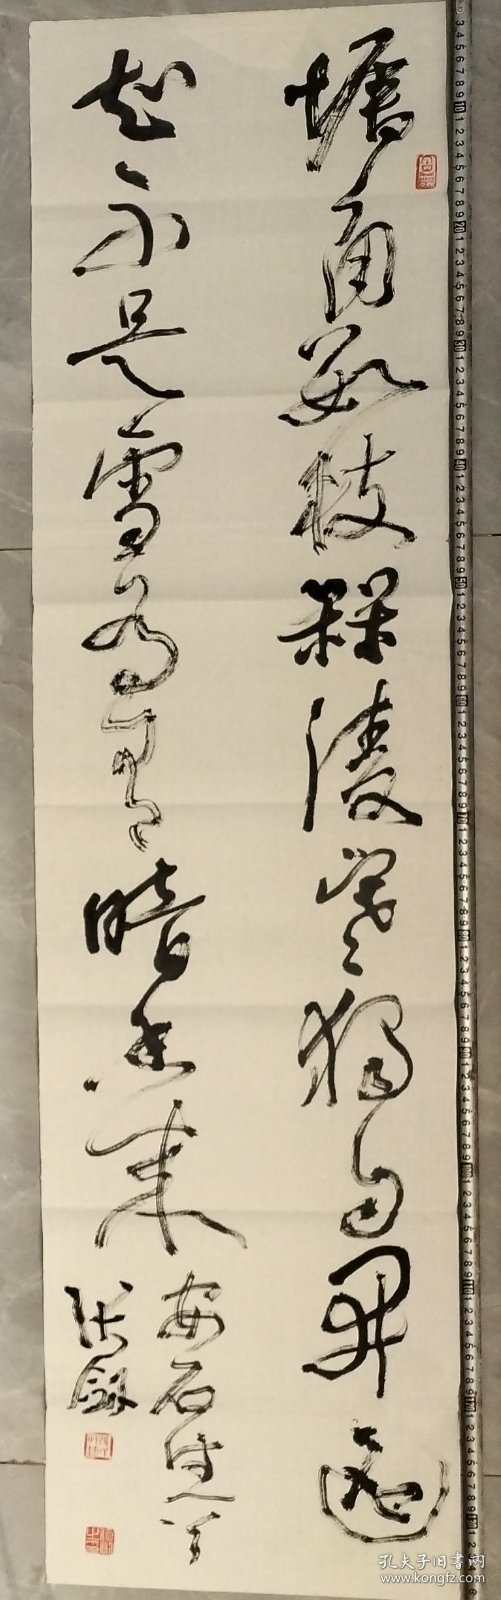 墙角数枝梅凌寒独自开遥
知不是雪为有暗香来
安石诗一首
张剑
孔夫子旧书网
www.kongfz.com